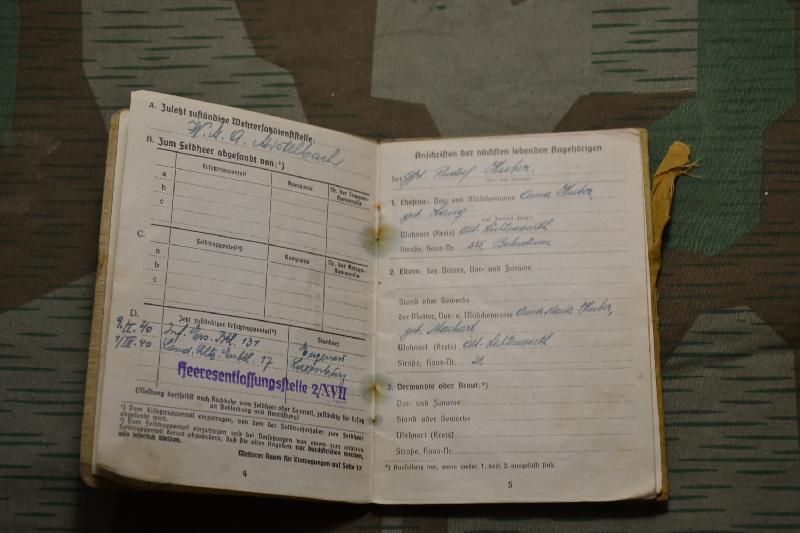 A. Zuletzt zuständige Wehrersatzdienststelle:
W. M. A. Mistelbach
B. Zum Feldheer abgesandt von:¹)
Ersatztruppenteil Kompanie Nr. der Truppen-stammrolle
a
b
c
C.
Feldtruppenteil²) Kompanie Nr. der Kriegs-stammrolle
a
b
c
D.
Jetzt zuständiger Ersatztruppenteil²) Standort
40 Inf. Ers. Btl. 131
40 17
Heeresentlassungsstelle 2/XVII
(Meldung dortselbst nach Rückkehr vom Feldheer oder Lazarett, zuständig für Ersatz
an Bekleidung und Ausrüstung)
¹) Vom Ersatztruppenteil einzutragen, von dem der Soldbuchinhaber zum Feldheer
abgesandt wird.
²) Vom Feldtruppenteil einzutragen und bei Versetzungen von einem zum anderen
Feldtruppenteil derart abzuändern, daß die alten Angaben nur durchstrichen werden,
also leserlich bleiben.
Weiterer Raum für Eintragungen auf Seite 17.
4
Anschriften der nächsten lebenden Angehörigen
des Rudolf Huber.
1. Ehefrau: Vor- und Mädchenname Anna Huber,
geb. Lang
Wohnort (Kreis) Alt. Lichtenwarth
Straße, Haus-Nr. 315,
2. Eltern: des Vaters, Vor- und Zuname
Stand oder Gewerbe
der Mutter, Vor- u. Mädchenname Anna Maria Huber,
geb.
Wohnort (Kreis) Alt. Lichtenwarth
Straße, Haus-Nr.
3. Verwandte oder Braut:*)
Vor- und Zuname
Stand oder Gewerbe
Wohnort (Kreis)
Straße, Haus-Nr.
*) Ausfüllung nur, wenn weder 1. noch 2. ausgefüllt sind.
5